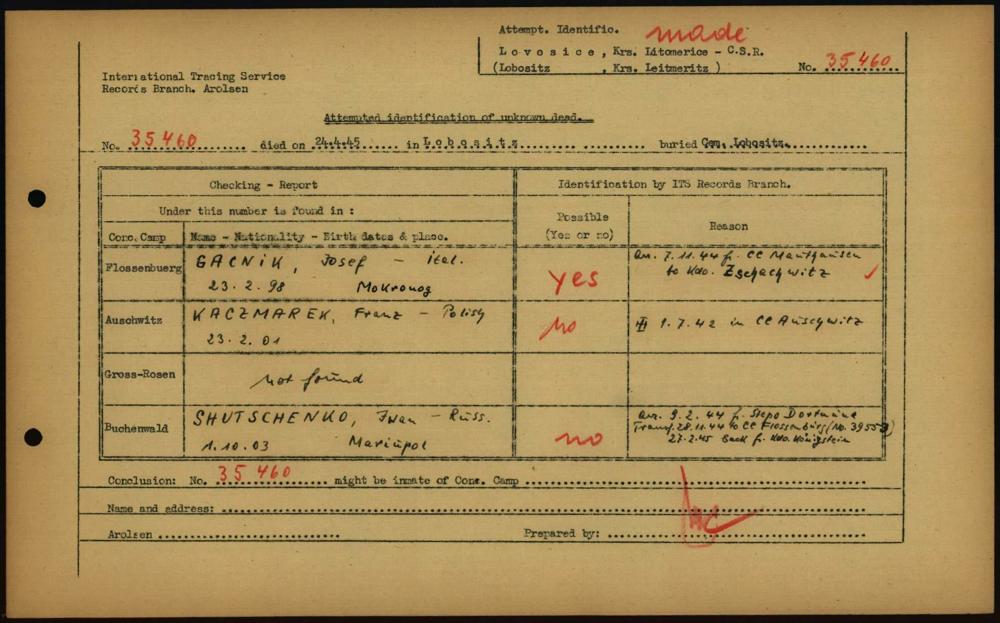 Attempt. Identific. made
Lovosice, Krs. Litomerice - C.S.R.
(Lobositz , Krs. Leitmeritz ) No. 35460
International Tracing Service
Records Branch. Arolsen
Attempted identification of unknown dead.
No. 35460 died on 24.4.45 in Lobositz buried Cem. Lobositz.
Checking - Report Identification by ITS Records Branch.
Under this number is found in :
Possible
(Yes or no) Reason
Conc. Camp Name - Nationality - Birth dates & place.
Flossenbuerg GACNIK, Josef - Ital. yes arr. 7.11.44 f. CC Mauthausen
23.2.98 Mokronog to Kdo. Zschachwitz
Auschwitz KACZMAREK, Franz - Polish no 1.7.42 in CC Auschwitz
23.2.01
Gross-Rosen not found
Buchenwald SHUTSCHENKO, Iwan - Russ. no arr. 9.2.44 f. Stapo Dortmund
Transf. 28.11.44 to CC Flossenbürg (No. 39553)
1.10.03 Mariupol 27.2.45 back f. Kdo. Königstein
Conclusion: No. 35460 might be inmate of Conc. Camp
Name and address:
Arolsen Prepared by: